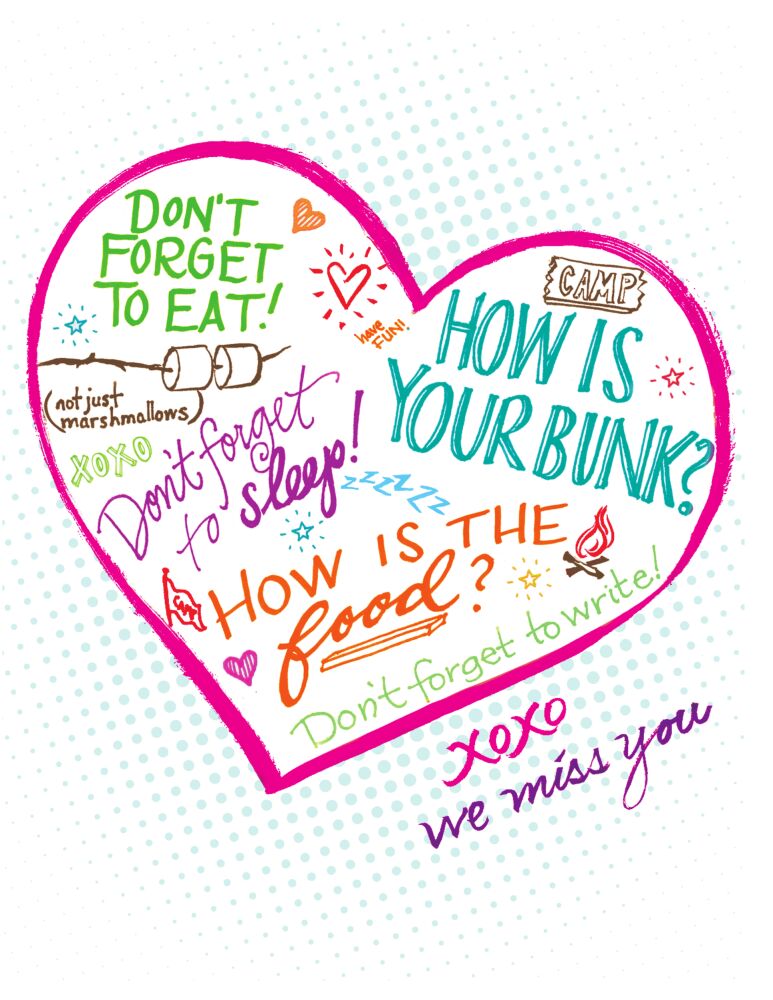 DON'T
FORGET
TO EAT!
have
FUN!
(not just
marshmallows)
XOXO
Don't forget
to sleep!
zzzzzz
CAMP
HOW IS
YOUR BUNK?
HOW IS THE
food?
Don't forget to write!
xoxo
we miss you